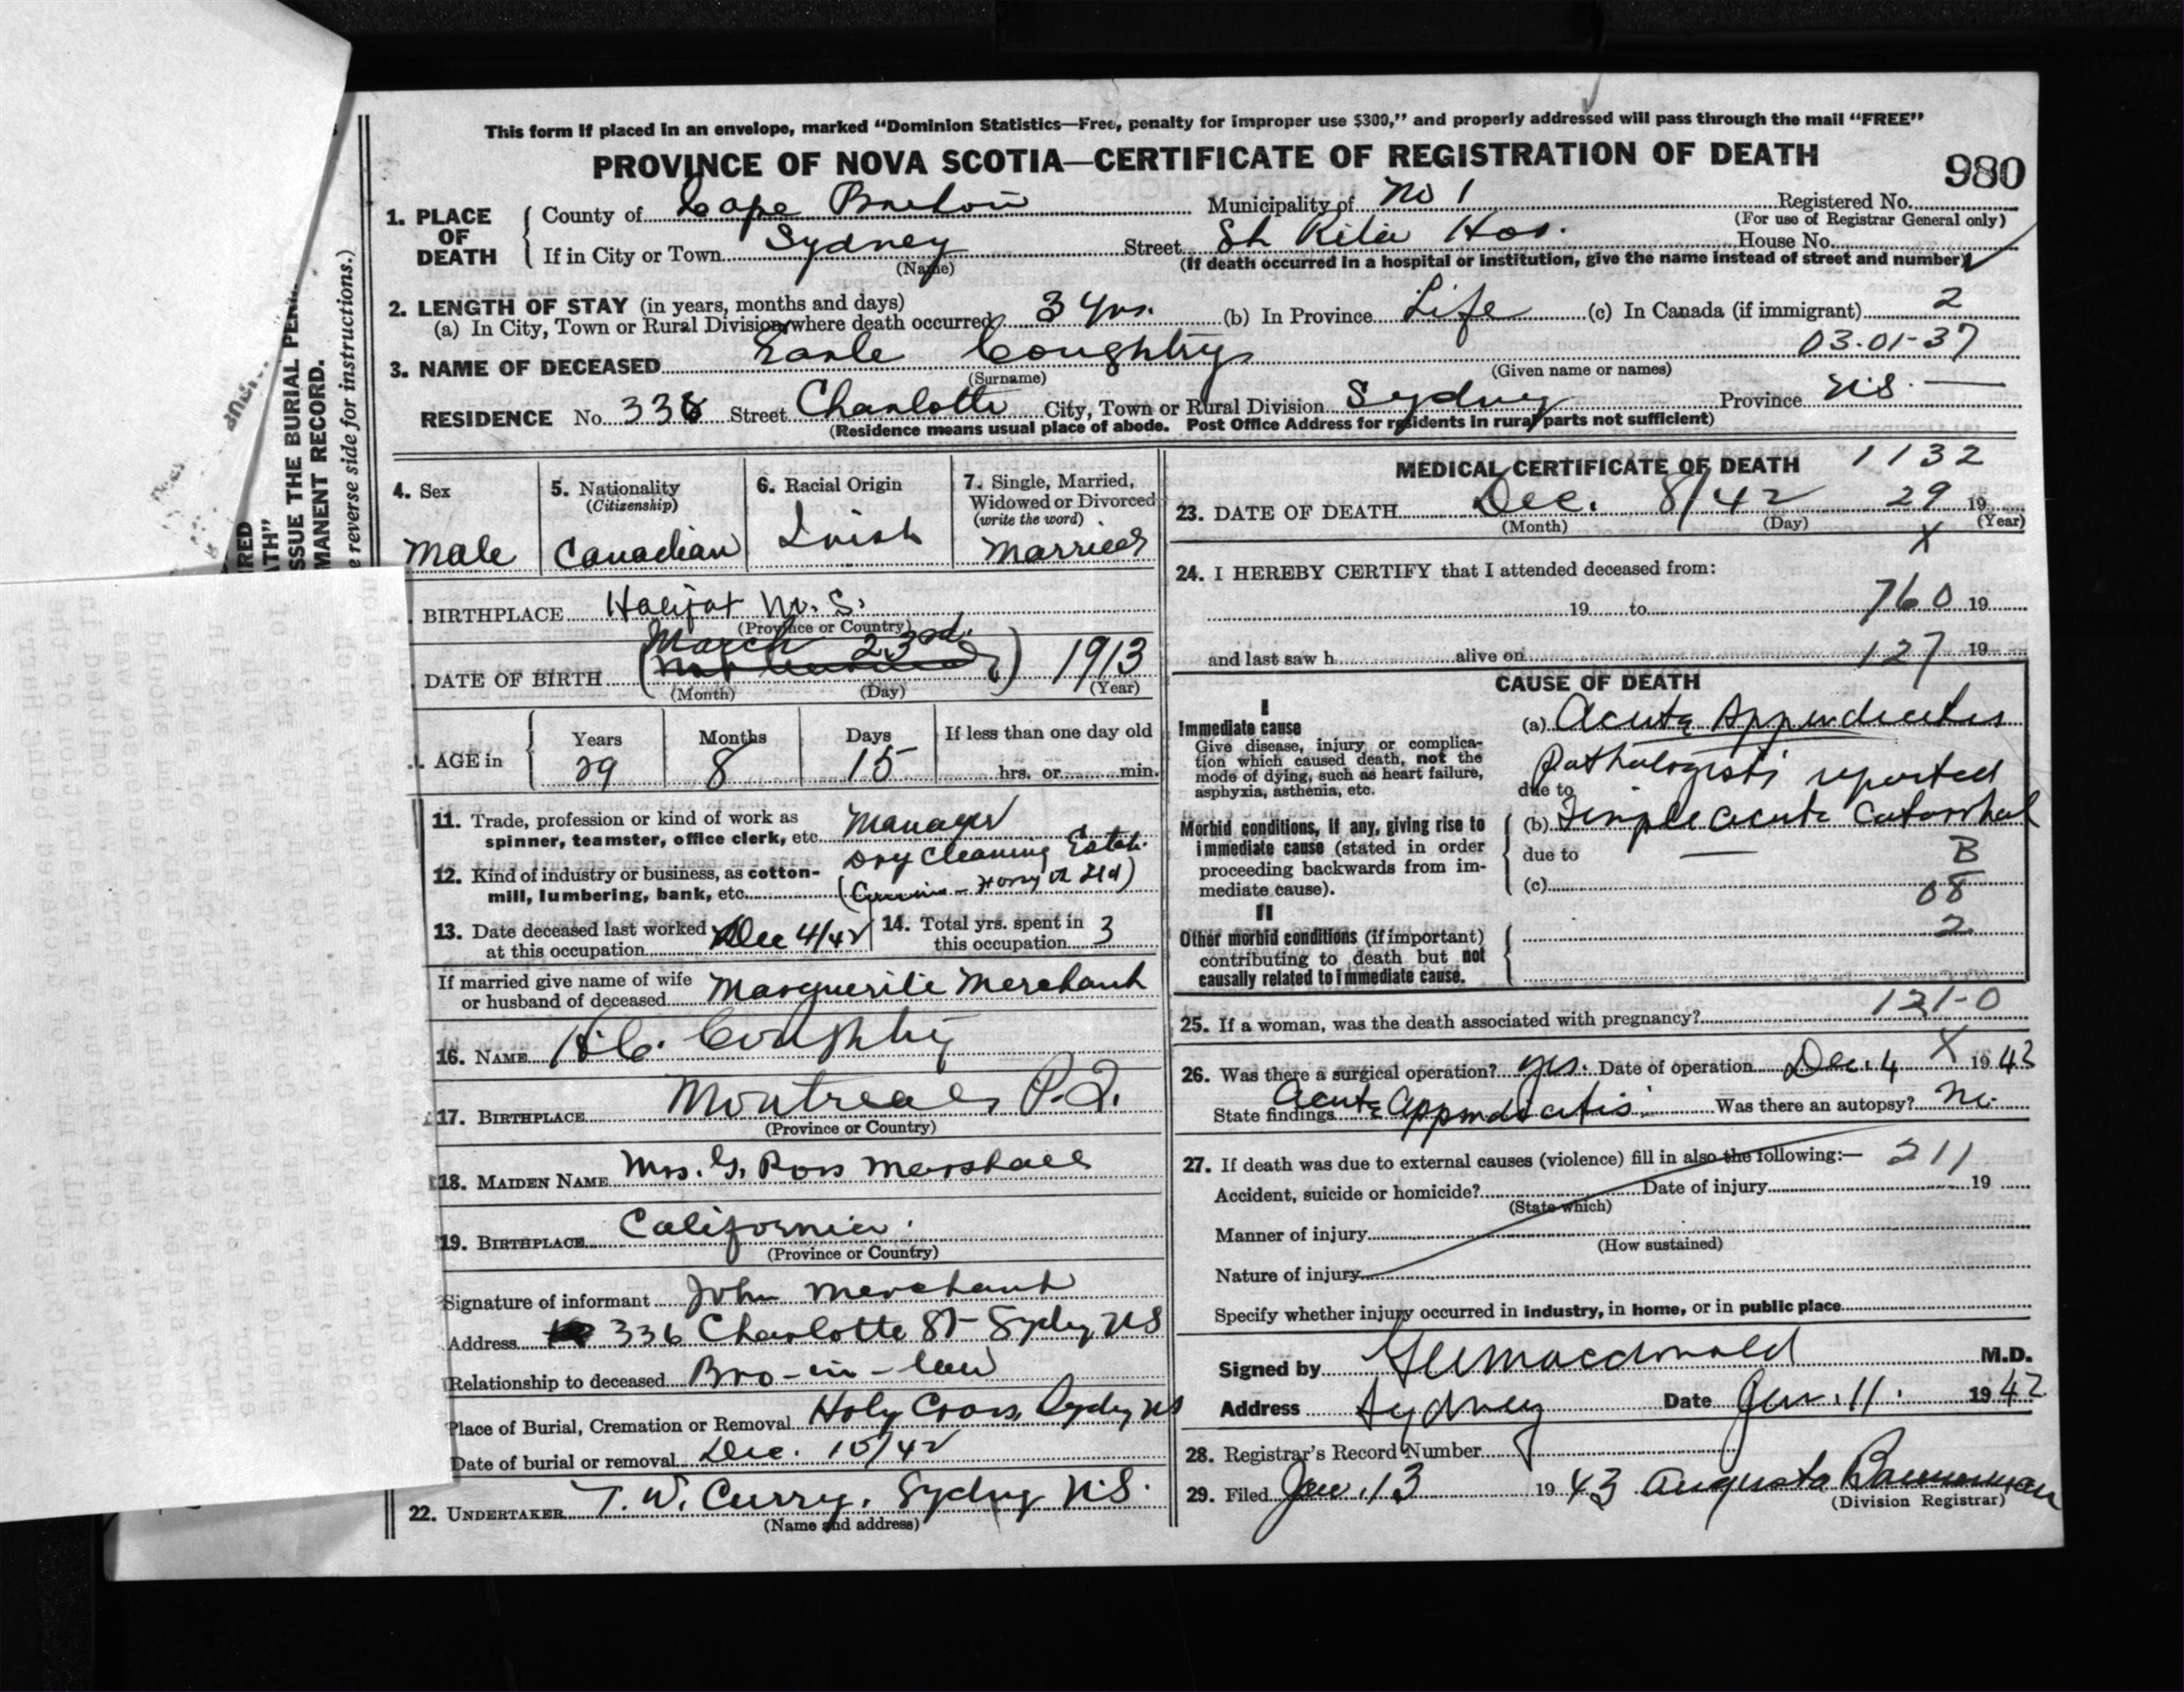 This form if placed in an envelope, marked “Dominion Statistics—Free, penalty for improper use $300,” and properly addressed will pass through the mail “FREE”
PROVINCE OF NOVA SCOTIA—CERTIFICATE OF REGISTRATION OF DEATH
980
1. PLACE OF DEATH
County of Cape Breton Municipality of No 1 Registered No.
(For use of Registrar General only)
If in City or Town Sydney Street St Rita Hos. House No.
(Name) (If death occurred in a hospital or institution, give the name instead of street and number)
2. LENGTH OF STAY (in years, months and days)
(a) In City, Town or Rural Division where death occurred 3 yrs. (b) In Province Life (c) In Canada (if immigrant) 2
03-01-37
3. NAME OF DECEASED Earle Coughtry
(Surname) (Given name or names)
RESIDENCE No. 336 Street Charlotte City, Town or Rural Division Sydney Province N.S. —
(Residence means usual place of abode. Post Office Address for residents in rural parts not sufficient)
4. Sex Male
5. Nationality (Citizenship) Canadian
6. Racial Origin Irish
7. Single, Married, Widowed or Divorced (write the word) Married
BIRTHPLACE Halifax N. S.
(Province or Country)
DATE OF BIRTH (March 23rd.) 1913
(Month) (Day) (Year)
AGE in
Years 29
Months 8
Days 15
If less than one day old
hrs. or min.
11. Trade, profession or kind of work as
spinner, teamster, office clerk, etc. Manager
12. Kind of industry or business, as cotton-
mill, lumbering, bank, etc. Dry Cleaning Estab.
13. Date deceased last worked at this occupation Dec 4/42
14. Total yrs. spent in this occupation 3
If married give name of wife
or husband of deceased Marguerite Merchant
16. NAME H.C. Coughtry
17. BIRTHPLACE Montreal, P.Q.
(Province or Country)
18. MAIDEN NAME Mrs. G. Ross Marshall
19. BIRTHPLACE California.
(Province or Country)
Signature of informant John Merchant
Address 336 Charlotte St- Sydney NS
Relationship to deceased Bro-in-law
Place of Burial, Cremation or Removal Holy Cross, Sydney NS
Date of burial or removal Dec. 10/42
22. UNDERTAKER T. W. Curry, Sydney N.S.
(Name and address)
MEDICAL CERTIFICATE OF DEATH 1132
23. DATE OF DEATH Dec. 8/42 29 19
(Month) (Day) (Year)
X
24. I HEREBY CERTIFY that I attended deceased from:
19 to 760 19
and last saw h alive on 127 19
CAUSE OF DEATH
I
Immediate cause
Give disease, injury or complica-
tion which caused death, not the
mode of dying, such as heart failure,
asphyxia, asthenia, etc.
(a) Acute Appendicitis
Pathologists reported
due to
Morbid conditions, if any, giving rise to
immediate cause (stated in order
proceeding backwards from im-
mediate cause).
(b) Simple acute Catarrhal
due to — B
(c) 08
II
Other morbid conditions (if important)
contributing to death but not
causally related to immediate cause.
2
121-0
25. If a woman, was the death associated with pregnancy?
X
26. Was there a surgical operation? yes. Date of operation Dec. 4 1942
State findings Acute Appendicitis. Was there an autopsy? No.
27. If death was due to external causes (violence) fill in also the following:— 211
Accident, suicide or homicide? Date of injury 19
(State which)
Manner of injury
(How sustained)
Nature of injury
Specify whether injury occurred in industry, in home, or in public place
Signed by Macdonald M.D.
Address Sydney Date Jan. 11. 1942
28. Registrar's Record Number
29. Filed Jan. 13 1943 Augusta
(Division Registrar)
ISSUE THE BURIAL
MANENT RECORD.
reverse side for instructions.)